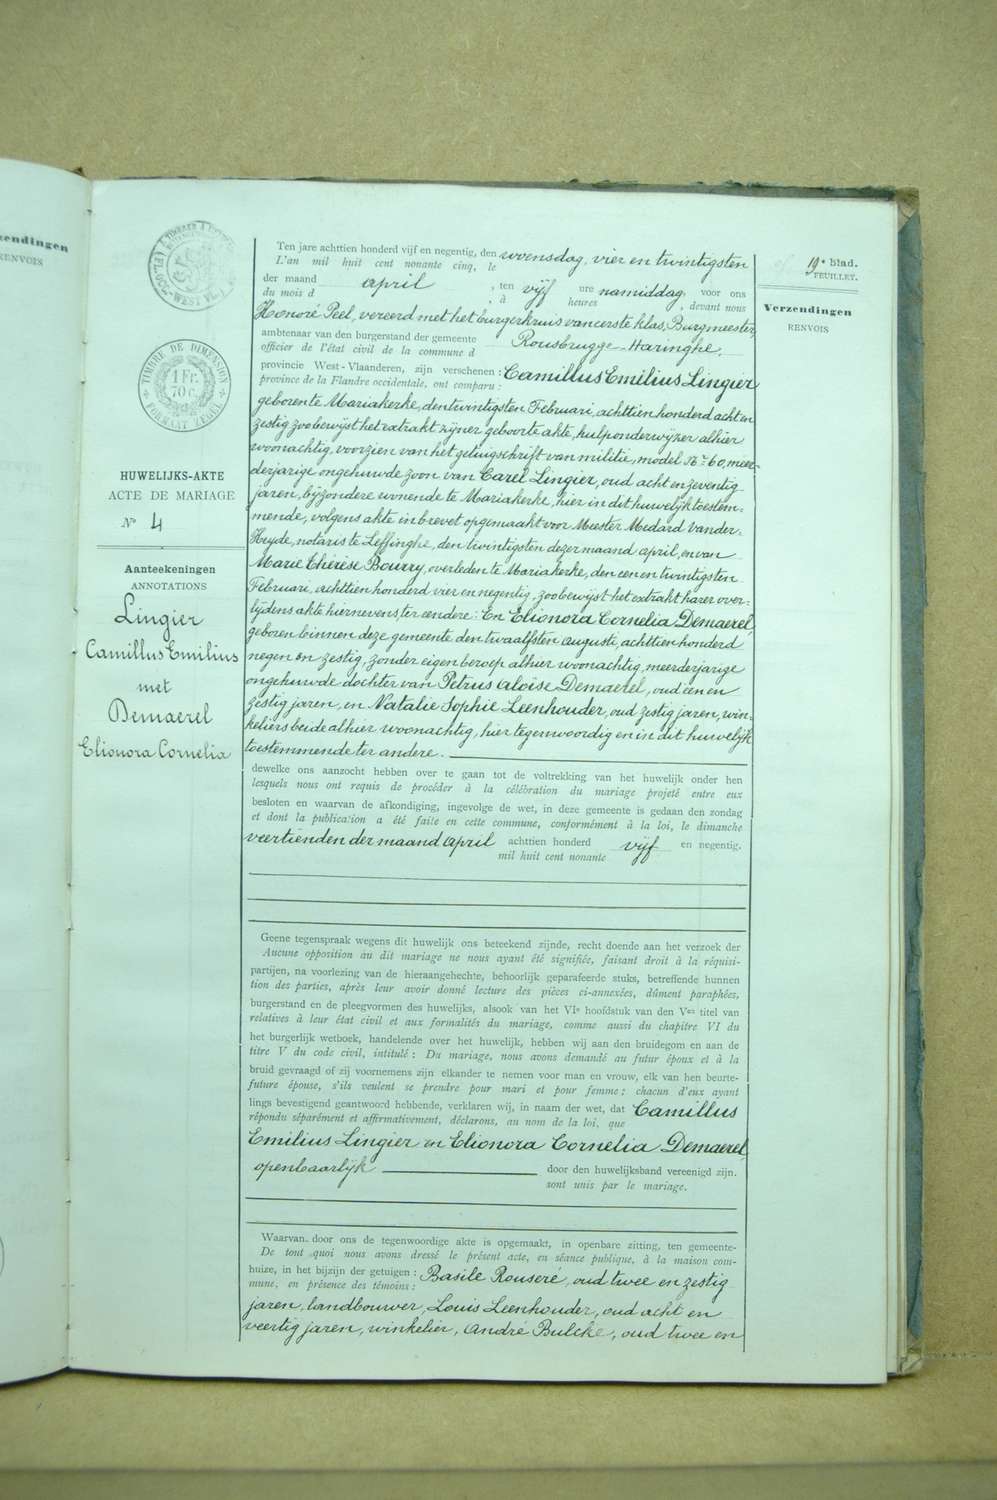 zendingen
RENVOIS
TIMBRE DE DIMENSION
1 Fr.
70 c.
FORMAAT ZEGEL
HUWELIJKS-AKTE
ACTE DE MARIAGE
No 4
Aanteekeningen
ANNOTATIONS
Lingier
Camillus Emilius
met
Demaerel
Elionora Cornelia
Ten jare achttien honderd vijf en negentig, den woensdag, vier en twintigsten
L'an mil huit cent nonante cinq, le
der maand april, ten vijf ure namiddag, voor ons
du mois d , à heures , devant nous
Honoré Peel, vereerd met het burgerkruis van eerste klas, Burgmeester,
ambtenaar van den burgerstand der gemeente Rousbrugge-Haringhe,
officier de l'état civil de la commune d
provincie West-Vlaanderen, zijn verschenen : Camillus Emilius Lingier
province de la Flandre occidentale, ont comparu :
geboren te Mariakerke, den twintigsten Februari, achttien honderd acht en
zestig zoo bewijst het extrakt zijner geboorte akte, hulponderwijzer alhier
woonachtig, voorzien van het getuigschrift van militie, model No 60, meer-
derjarige ongehuwde zoon van Carel Lingier, oud acht en zeventig
jaren, bijzondere wonende te Mariakerke, hier in dit huwelijk toestem-
mende, volgens akte in brevet opgemaakt voor Meester Medard Vander-
Heyde, notaris te Leffinghe, den twintigsten dezer maand april, en van
Marie Thérèse Bourry, overleden te Mariakerke, den een en twintigsten
Februari, achttien honderd vier en negentig, zoo bewijst het extrakt harer over-
lijdens akte hiernevens ter eendere : En Elionora Cornelia Demaerel,
geboren binnen deze gemeente den twaalfsten augusti, achttien honderd
negen en zestig, zonder eigen beroep alhier woonachtig, meerderjarige
ongehuwde dochter van Petrus Aloïse Demaerel, oud een en
zestig jaren, en Natalie Sophie Leenhouder, oud zestig jaren, win-
keliers beide alhier woonachtig, hier tegenwoordig en in dit huwelijk
toestemmende ter andere.
dewelke ons aanzocht hebben over te gaan tot de voltrekking van het huwelijk onder hen
lesquels nous ont requis de procéder à la célébration du mariage projeté entre eux
besloten en waarvan de afkondiging, ingevolge de wet, in deze gemeente is gedaan den zondag
et dont la publication a été faite en cette commune, conformément à la loi, le dimanche
veertienden der maand april achttien honderd vijf en negentig.
mil huit cent nonante
Geene tegenspraak wegens dit huwelijk ons beteekend zijnde, recht doende aan het verzoek der
Aucune opposition au dit mariage ne nous ayant été signifiée, faisant droit à la réquisi-
partijen, na voorlezing van de hieraangehechte, behoorlijk geparafeerde stuks, betreffende hunnen
tion des parties, après leur avoir donné lecture des pièces ci-annexées, dûment paraphées,
burgerstand en de pleegvormen des huwelijks, alsook van het VIe hoofdstuk van den Ven titel van
relatives à leur état civil et aux formalités du mariage, comme aussi du chapitre VI du
het burgerlijk wetboek, handelende over het huwelijk, hebben wij aan den bruidegom en aan de
titre V du code civil, intitulé : Du mariage, nous avons demandé au futur époux et à la
bruid gevraagd of zij voornemens zijn elkander te nemen voor man en vrouw, elk van hen beurte-
future épouse, s'ils veulent se prendre pour mari et pour femme ; chacun d'eux ayant
lings bevestigend geantwoord hebbende, verklaren wij, in naam der wet, dat Camillus
répondu séparément et affirmativement, déclarons, au nom de la loi, que
Emilius Lingier en Elionora Cornelia Demaerel,
openbaarlijk door den huwelijksband vereenigd zijn.
sont unis par le mariage.
Waarvan door ons de tegenwoordige akte is opgemaakt, in openbare zitting, ten gemeente-
De tout quoi nous avons dressé le présent acte, en séance publique, à la maison com-
huize, in het bijzijn der getuigen : Basile Rousere, oud twee en zestig
mune, en présence des témoins :
jaren, landbouwer, Louis Leenhouder, oud acht en
veertig jaren, winkelier, André Bulcke, oud twee en
19e blad.
FEUILLET.
Verzendingen
RENVOIS